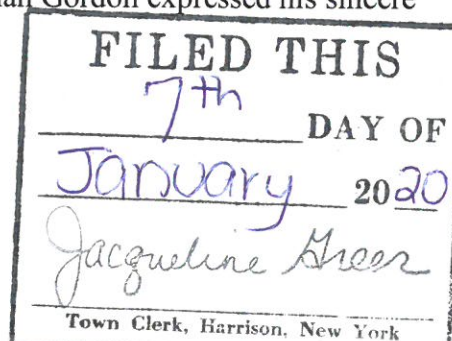 Gordon expressed his sincere
FILED THIS
7th DAY OF
January 2020
Jacqueline Greer
Town Clerk, Harrison, New York